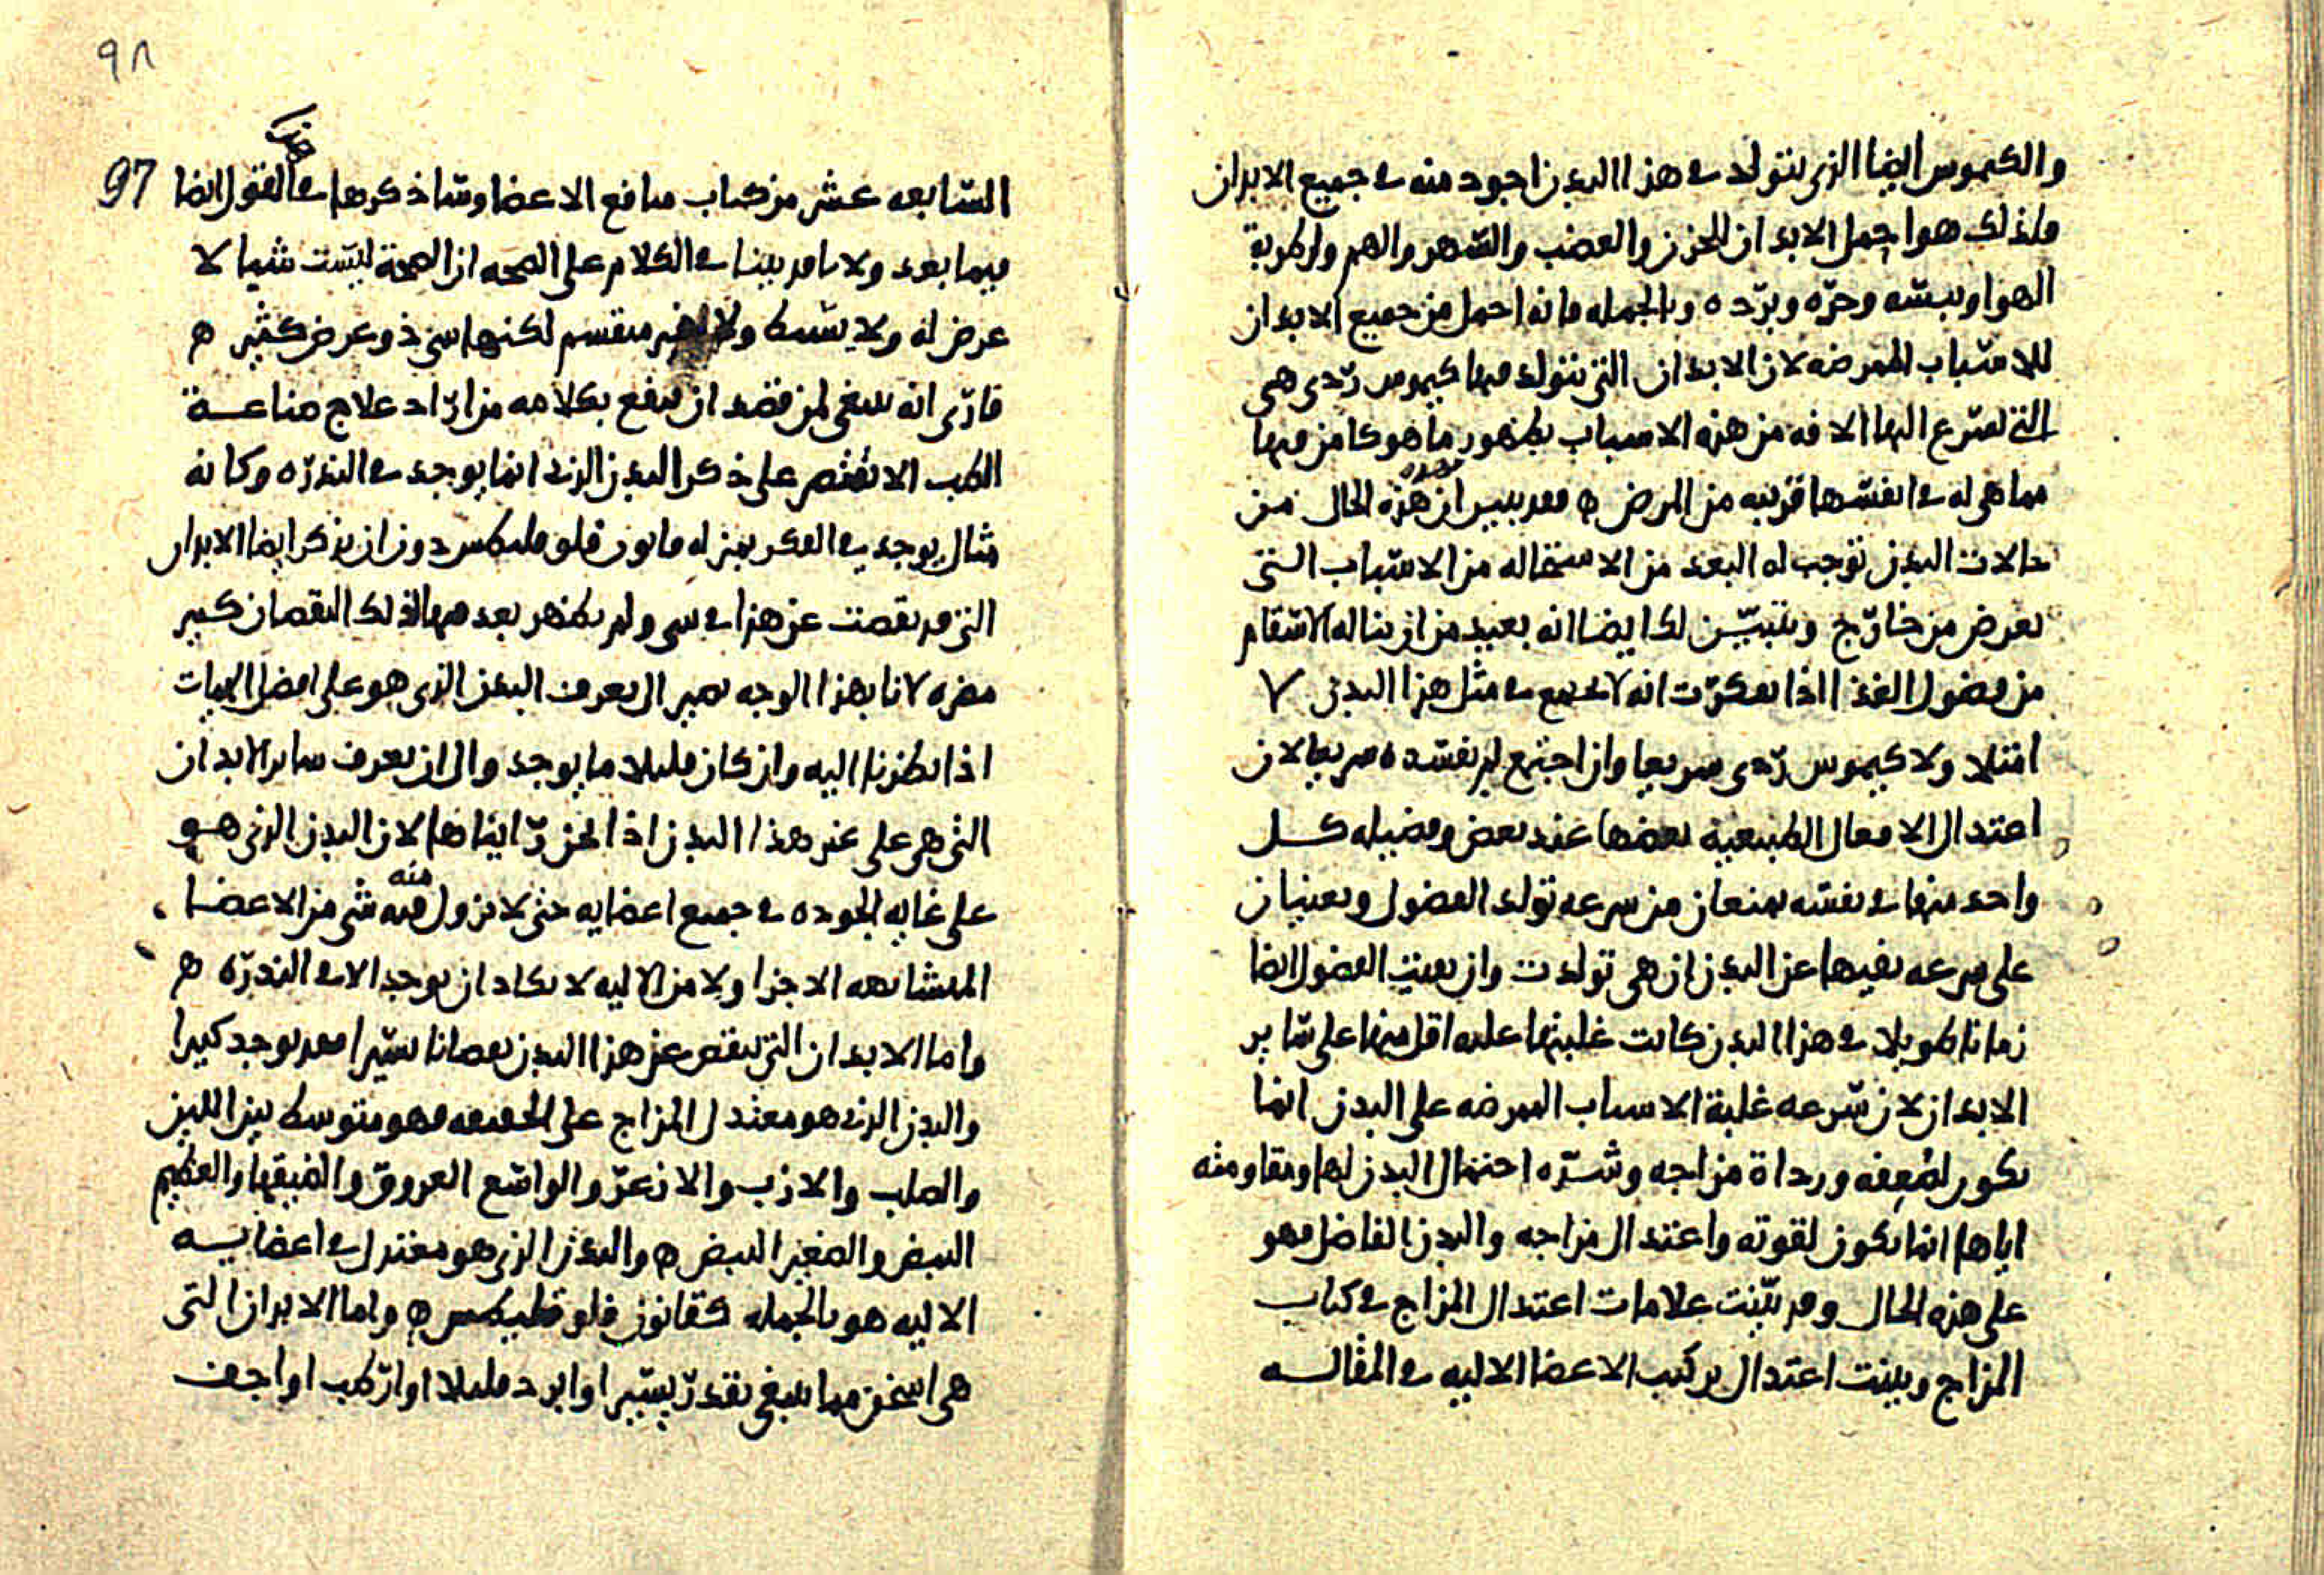 والكيموس ايضا الذى يتولد فى هذا البدن اجود منه فى جميع الابدان
ولذلك هو احمل الابدان للحزن والغضب والسهر والهم ولرطوبة
الهوا ويبسه وحره وبرده وبالجمله فانه احمل من جميع الابدان
للاسباب الممرضه لان الابدان التى يتولد فيها كيموس ردى هى
التى تسرع اليها الافه من هذه الاسباب بظهور ما هو كامن فيها
مما هى له فى انفسها قريبه من المرض ه فقد تبين ان هذه الحال من
حالات البدن توجب له البعد من الاستحاله من الاسباب التى
تعرض من خارج ويتبين لك ايضا انه بعيد من ان يناله الاسقام
من فضول الغذا اذا تفكرت انه لا يجتمع فى مثل هذا البدن لا
امتلا ولا كيموس ردى سريعا وان اجتمع لم يفسده سريعا لان
اعتدال الافعال الطبيعية بعضها عند بعض وفضيله كل
واحد منها فى نفسه يمنعان من سرعه تولد الفضول ويعينان
على سرعه نفيها عن البدن ان هى تولدت وان بقيت الفضول ايضا
زمانا طويلا فى هذا البدن كانت غلبتها عليه اقل منها على ساير
الابدان لان سرعه غلبة الاسباب الممرضه على البدن انما
يكون لضعفه ورداة مزاجه وشده احتمال البدن لها ومقاومته
اياها انما يكون لقوته واعتدال مزاجه والبدن الفاضل فهو
على هذه الحال وقد بينت علامات اعتدال المزاج فى كتاب
المزاج وبينت اعتدال تركيب الاعضا الاليه فى المقاله
٩٨
97
السابعه عشر من كتاب منافع الاعضا وساذكرها فى القول ايضا
فيما بعد ولانا قد بينا فى الكلام على الصحه ان الصحة ليست شيا لا
عرض له ولا بسيط ولا غير منقسم لكنها شى ذو عرض كثير ه
فارى انه ينبغى لمن قصد ان ينفع بكلامه من اراد علاج صناعة
الطب الا يقتصر على ذكر البدن الذى انما يوجد فى الندره وكانه
مثال يوجد فى الفكر بمنزله قانون فلوقليطس دون ان يذكر ايضا الابدان
التى قد نقصت عن هذا فى شى ولم يظهر بعد فيها لذلك النقصان كبير
مضره لانا بهذا الوجه نصير الى تعرف البدن الذى هو على افضل الهيات
اذا نظرنا اليه وان كان قليلا ما يوجد والى ان نعرف ساير الابدان
التى هى على غير هذا البدن اذا نحن رايناها لان البدن الذى هو
على غايه الجوده فى جميع اعضايه حتى لا يزول منه شى من الاعضا
المتشابهه الاجزا ولا من الاليه لا يكاد ان يوجد الا فى الندره ه
واما الابدان التى تنقص عن هذا البدن نقصانا يسيرا فقد يوجد كثيرا
والبدن الذى هو معتدل المزاج على الحقيقه فهو متوسط بين اللين
والصلب والازب والازعر والواسع العروق والضيقها والعظيم
النبض والصغير النبض ه والبدن الذى هو معتدل فى اعضايه
الاليه هو بالجمله كقانون فلوقليطس ه واما الابدان التى
هى اسخن مما ينبغى بقدر يسير او ابرد قليلا او ارطب او اجف